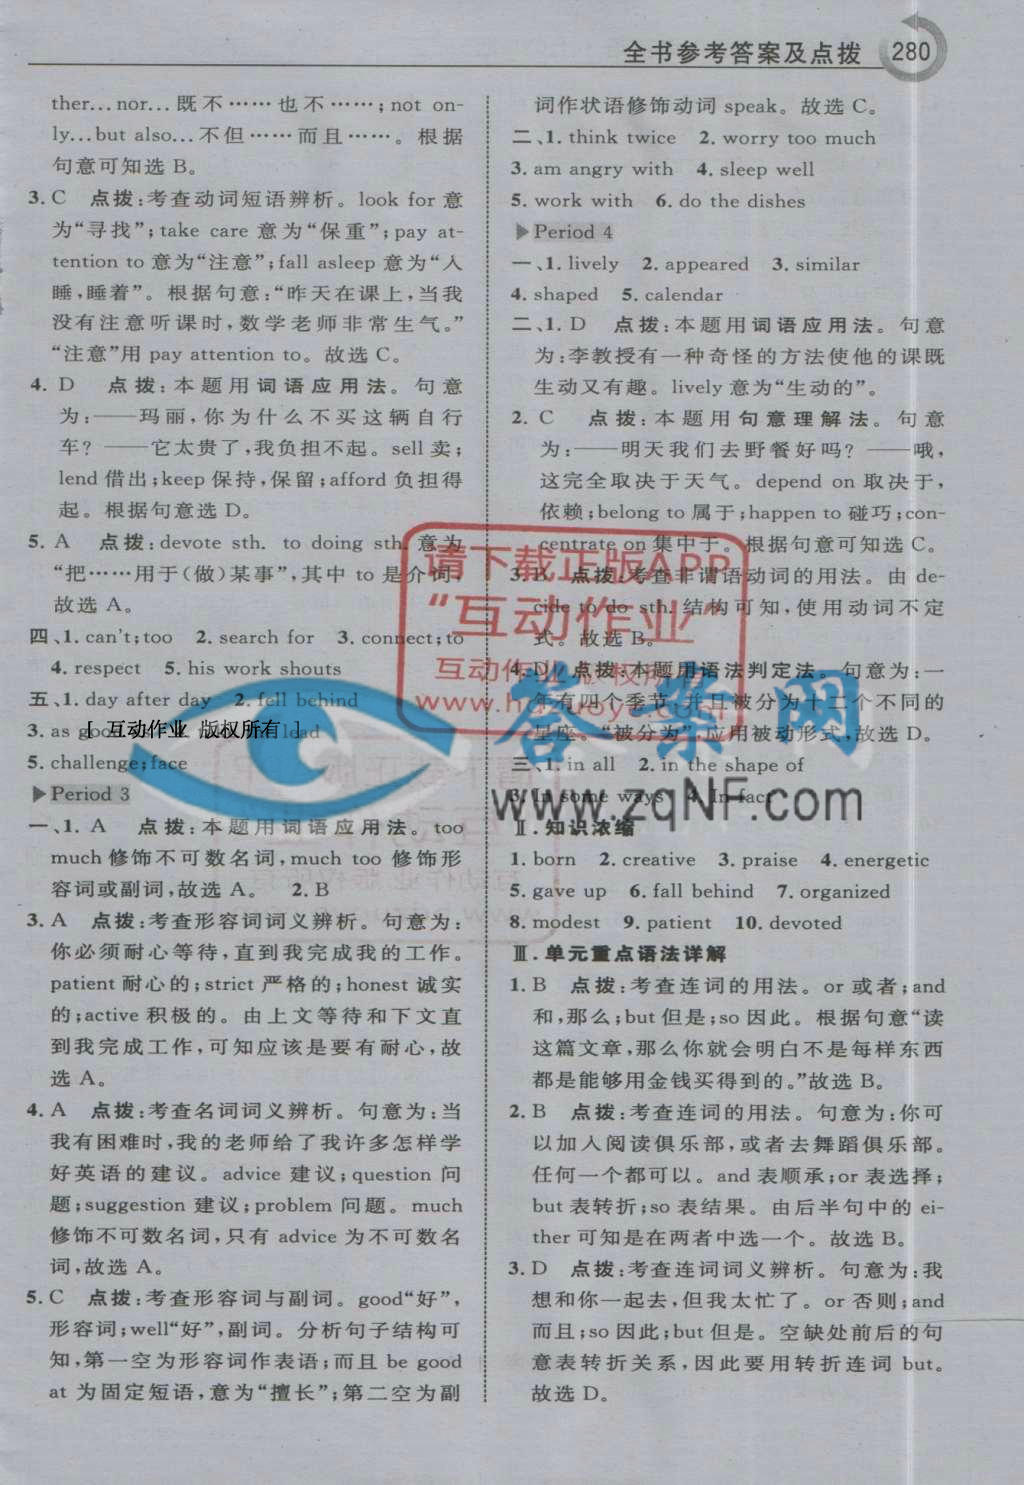 全书参考答案及点拨 280
ther…nor…既不……也不……;not on-
ly…but also…不但……而且……。根据
句意可知选 B。
3. C 点拨:考查动词短语辨析。look for 意
为“寻找”;take care 意为“保重”;pay at-
tention to 意为“注意”;fall asleep 意为“人
睡,睡着”。根据句意:“昨天在课上,当我
没有注意听课时,数学老师非常生气。”
“注意”用 pay attention to。故选 C。
4. D 点拨:本题用词语应用法。句意
为:——玛丽,你为什么不买这辆自行
车? ——它太贵了,我负担不起。sell 卖;
lend 借出;keep 保持,保留;afford 负担得
起。根据句意选 D。
5. A 点拨:devote sth. to doing sth. 意为
“把……用于(做)某事”,其中 to 是介词,
故选 A。
四、1. can't;too 2. search for 3. connect;to
4. respect 5. his work shouts
五、1. day after day 2. fell behind
3. as good lead
[ 互动作业 版权所有 ]
5. challenge;face
Period 3
一、1. A 点拨:本题用词语应用法。too
much 修饰不可数名词,much too 修饰形
容词或副词,故选 A。 2. B
3. A 点拨:考查形容词词义辨析。句意为:
你必须耐心等待,直到我完成我的工作。
patient 耐心的;strict 严格的;honest 诚实
的;active 积极的。由上文等待和下文直
到我完成工作,可知应该是要有耐心,故
选 A。
4. A 点拨:考查名词词义辨析。句意为:当
我有困难时,我的老师给了我许多怎样学
好英语的建议。advice 建议;question 问
题;suggestion 建议;problem 问题。much
修饰不可数名词,只有 advice 为不可数名
词,故选 A。
5. C 点拨:考查形容词与副词。good“好”,
形容词;well“好”,副词。分析句子结构可
知,第一空为形容词作表语;而且 be good
at 为固定短语,意为“擅长”;第二空为副
词作状语修饰动词 speak。故选 C。
二、1. think twice 2. worry too much
3. am angry with 4. sleep well
5. work with 6. do the dishes
Period 4
一、1. lively 2. appeared 3. similar
4. shaped 5. calendar
二、1. D 点拨:本题用词语应用法。句意
为:李教授有一种奇怪的方法使他的课既
生动又有趣。lively 意为“生动的”。
2. C 点拨:本题用句意理解法。句意
为:——明天我们去野餐好吗? ——哦,
这完全取决于天气。depend on 取决于,
依赖;belong to 属于;happen to 碰巧;con-
centrate on 集中于。根据句意可知选 C。
3. B 点拨:考查非谓语动词的用法。由 de-
cide to do sth. 结构可知,使用动词不定
式。故选 B。
4. D 点拨:本题用语法判定法。句意为:一
年有四个季节,并且被分为十二个不同的
星座。“被分为”,应用被动形式,故选 D。
三、1. in all 2. in the shape of
3. In some ways 4. In fact
Ⅱ. 知识浓缩
1. born 2. creative 3. praise 4. energetic
5. gave up 6. fall behind 7. organized
8. modest 9. patient 10. devoted
Ⅲ. 单元重点语法详解
1. B 点拨:考查连词的用法。or 或者;and
和,那么;but 但是;so 因此。根据句意“读
这篇文章,那么你就会明白不是每样东西
都是能够用金钱买得到的。”故选 B。
2. B 点拨:考查连词的用法。句意为:你可
以加入阅读俱乐部,或者去舞蹈俱乐部。
任何一个都可以。and 表顺承;or 表选择;
but 表转折;so 表结果。由后半句中的 ei-
ther 可知是在两者中选一个。故选 B。
3. D 点拨:考查连词词义辨析。句意为:我
想和你一起去,但我太忙了。or 否则;and
而且;so 因此;but 但是。空缺处前后的句
意表转折关系,因此要用转折连词 but。
故选 D。
请下载正版APP
“互动作业”
互动作业 版权所有
www.hdzuoye.com
答案网
www.zqNF.com